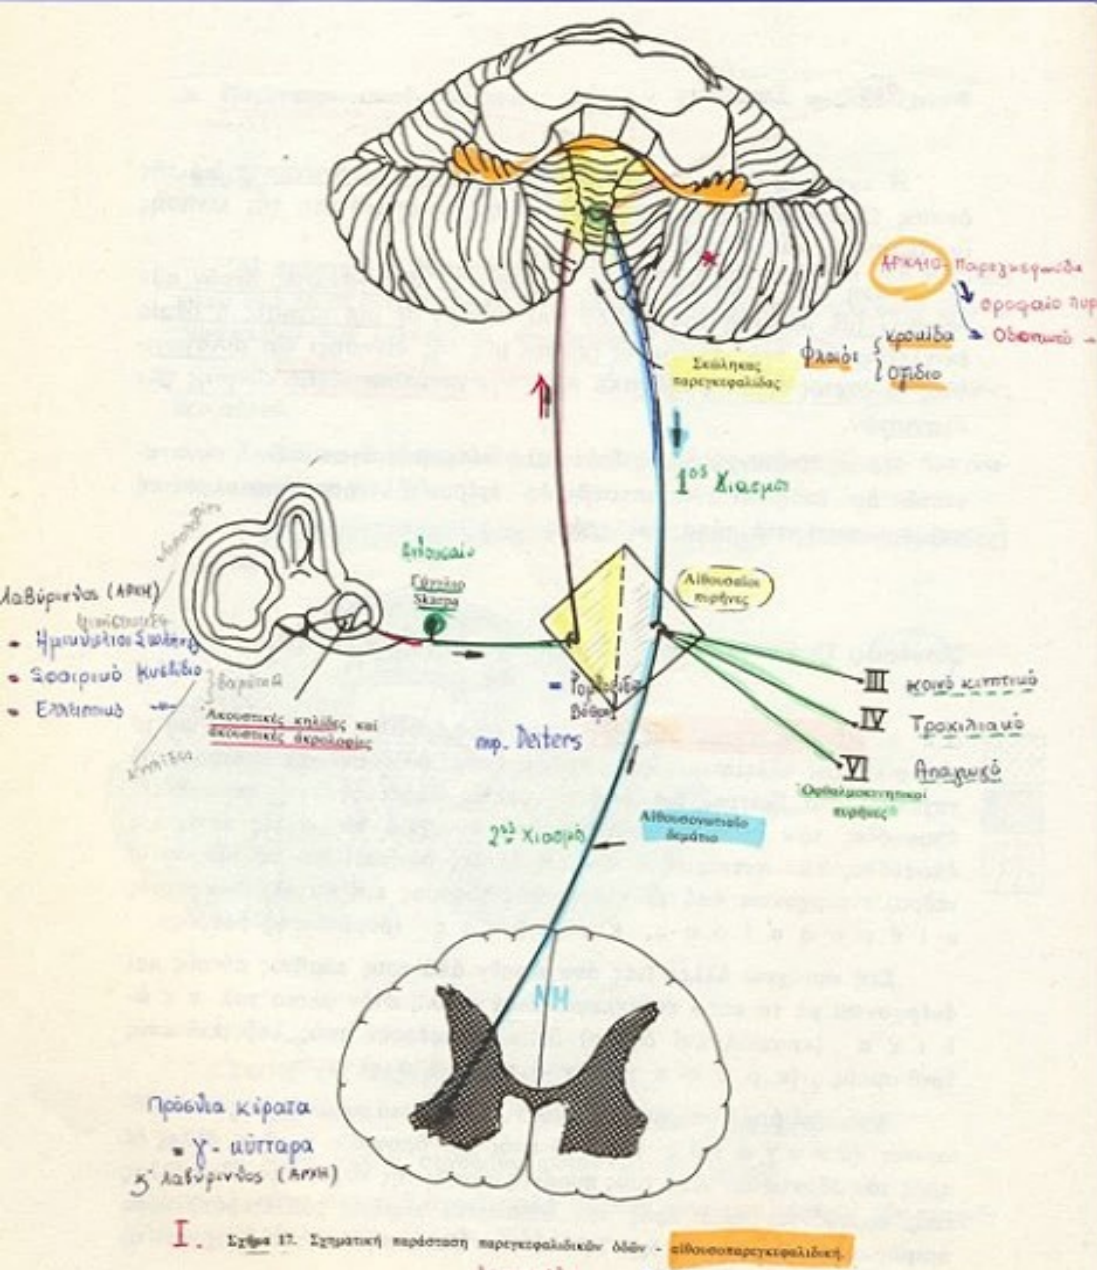 ΑΡΧΑΙΟ- Παρεγκεφαλίδα
Οροφαίο πυρ
Οδοντωτό
Φλοιός
κροκύδα
οζίδιο
Σκώληκας
παρεγκεφαλίδας
1ος Χιασμός
Αιθουσαίο
Γάγγλιο
Skarpa
Αἰθουσαῖοι
πυρῆνες
Λαβύρινθος (ΑΡΧΗ)
Ημικύκλιοι Σωλήνες
Σφαιρικό Κυστίδιο
Ελλειπτικό
βαρύτητα
Ἀκουστικές κηλίδες καί
ἀκουστικές ἀκρολοφίες
= Ρομβοειδή
Βόθρο
πυρ. Deiters
III κοινό κινητικό
IV Τροχιλιακό
VI Απαγωγό
Ὀφθαλμοκινητικοί
πυρῆνες
2ος Χιασμός
Αἰθουσονωτιαῖο
δεμάτιο
ΝΗ
Πρόσθια κέρατα
= γ- κύτταρα
ξ Λαβύρινθος (ΑΡΧΗ)
I. Σχῆμα 17. Σχηματική παράσταση παρεγκεφαλιδικῶν ὁδῶν - αἰθουσοπαρεγκεφαλιδική.